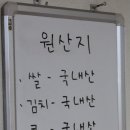 원산지
· 쌀 - 국내산
· 김치 - 국내산
국내산